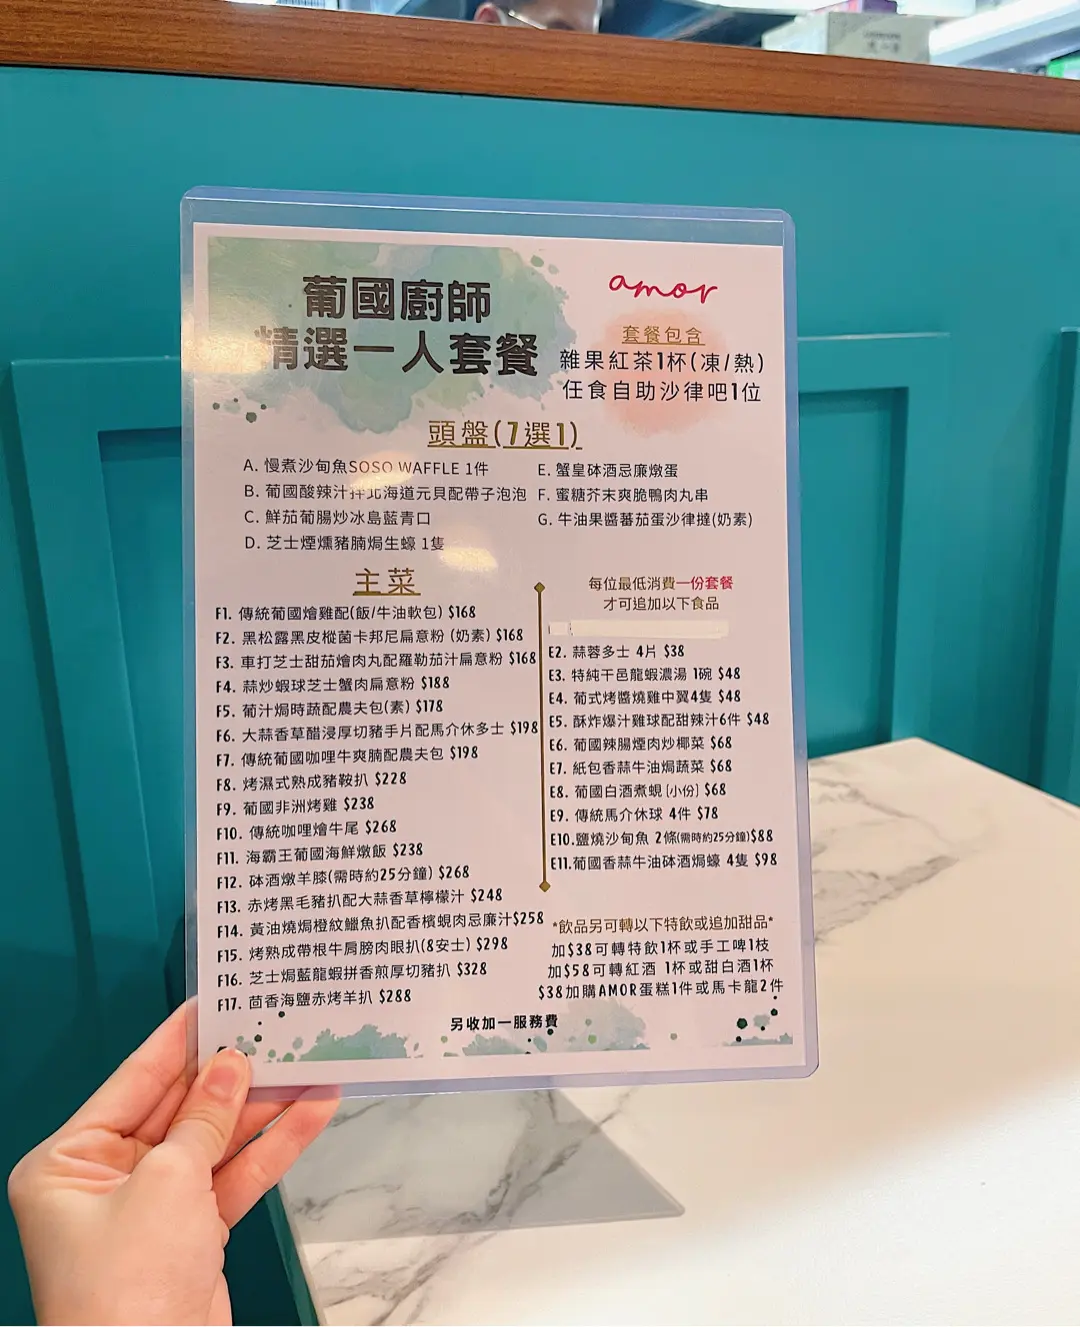 葡國廚師
精選一人套餐
amor
套餐包含
雜果紅茶1杯(凍/熱)
任食自助沙律吧1位
頭盤(7選1)
A. 慢煮沙甸魚SOSO WAFFLE 1件
B. 葡國酸辣汁拌北海道元貝配帶子泡泡
C. 鮮茄葡腸炒冰島藍青口
D. 芝士煙燻豬腩焗生蠔 1隻
E. 蟹皇砵酒忌廉燉蛋
F. 蜜糖芥末爽脆鴨肉丸串
G. 牛油果醬蕃茄蛋沙律撻(奶素)
主菜
F1. 傳統葡國燴雞配(飯/牛油軟包) $168
F2. 黑松露黑皮樅菌卡邦尼扁意粉 (奶素) $168
F3. 車打芝士甜茄燴肉丸配羅勒茄汁扁意粉 $168
F4. 蒜炒蝦球芝士蟹肉扁意粉 $188
F5. 葡汁焗時蔬配農夫包(素) $178
F6. 大蒜香草醋浸厚切豬手片配馬介休多士 $198
F7. 傳統葡國咖哩牛爽腩配農夫包 $198
F8. 烤濕式熟成豬鞍扒 $228
F9. 葡國非洲烤雞 $238
F10. 傳統咖哩燴牛尾 $268
F11. 海霸王葡國海鮮燉飯 $238
F12. 砵酒燉羊膝(需時約25分鐘) $268
F13. 赤烤黑毛豬扒配大蒜香草檸檬汁 $248
F14. 黃油燒焗橙紋鱲魚扒配香檳蜆肉忌廉汁$258
F15. 烤熟成帶根牛肩膀肉眼扒(8安士) $298
F16. 芝士焗藍龍蝦拼香煎厚切豬扒 $328
F17. 茴香海鹽赤烤羊扒 $288
每位最低消費一份套餐
才可追加以下食品
E2. 蒜蓉多士 4片 $38
E3. 特純干邑龍蝦濃湯 1碗 $48
E4. 葡式烤醬燒雞中翼4隻 $48
E5. 酥炸爆汁雞球配甜辣汁6件 $48
E6. 葡國辣腸煙肉炒椰菜 $68
E7. 紙包香蒜牛油焗蔬菜 $68
E8. 葡國白酒煮蜆 [小份] $68
E9. 傳統馬介休球 4件 $78
E10.鹽燒沙甸魚 2條(需時約25分鐘)$88
E11.葡國香蒜牛油砵酒焗蠔 4隻 $98
*飲品另可轉以下特飲或追加甜品*
加$38可轉特飲1杯或手工啤1枝
加$58可轉紅酒 1杯或甜白酒1杯
$38加購AMOR蛋糕1件或馬卡龍2件
另收加一服務費